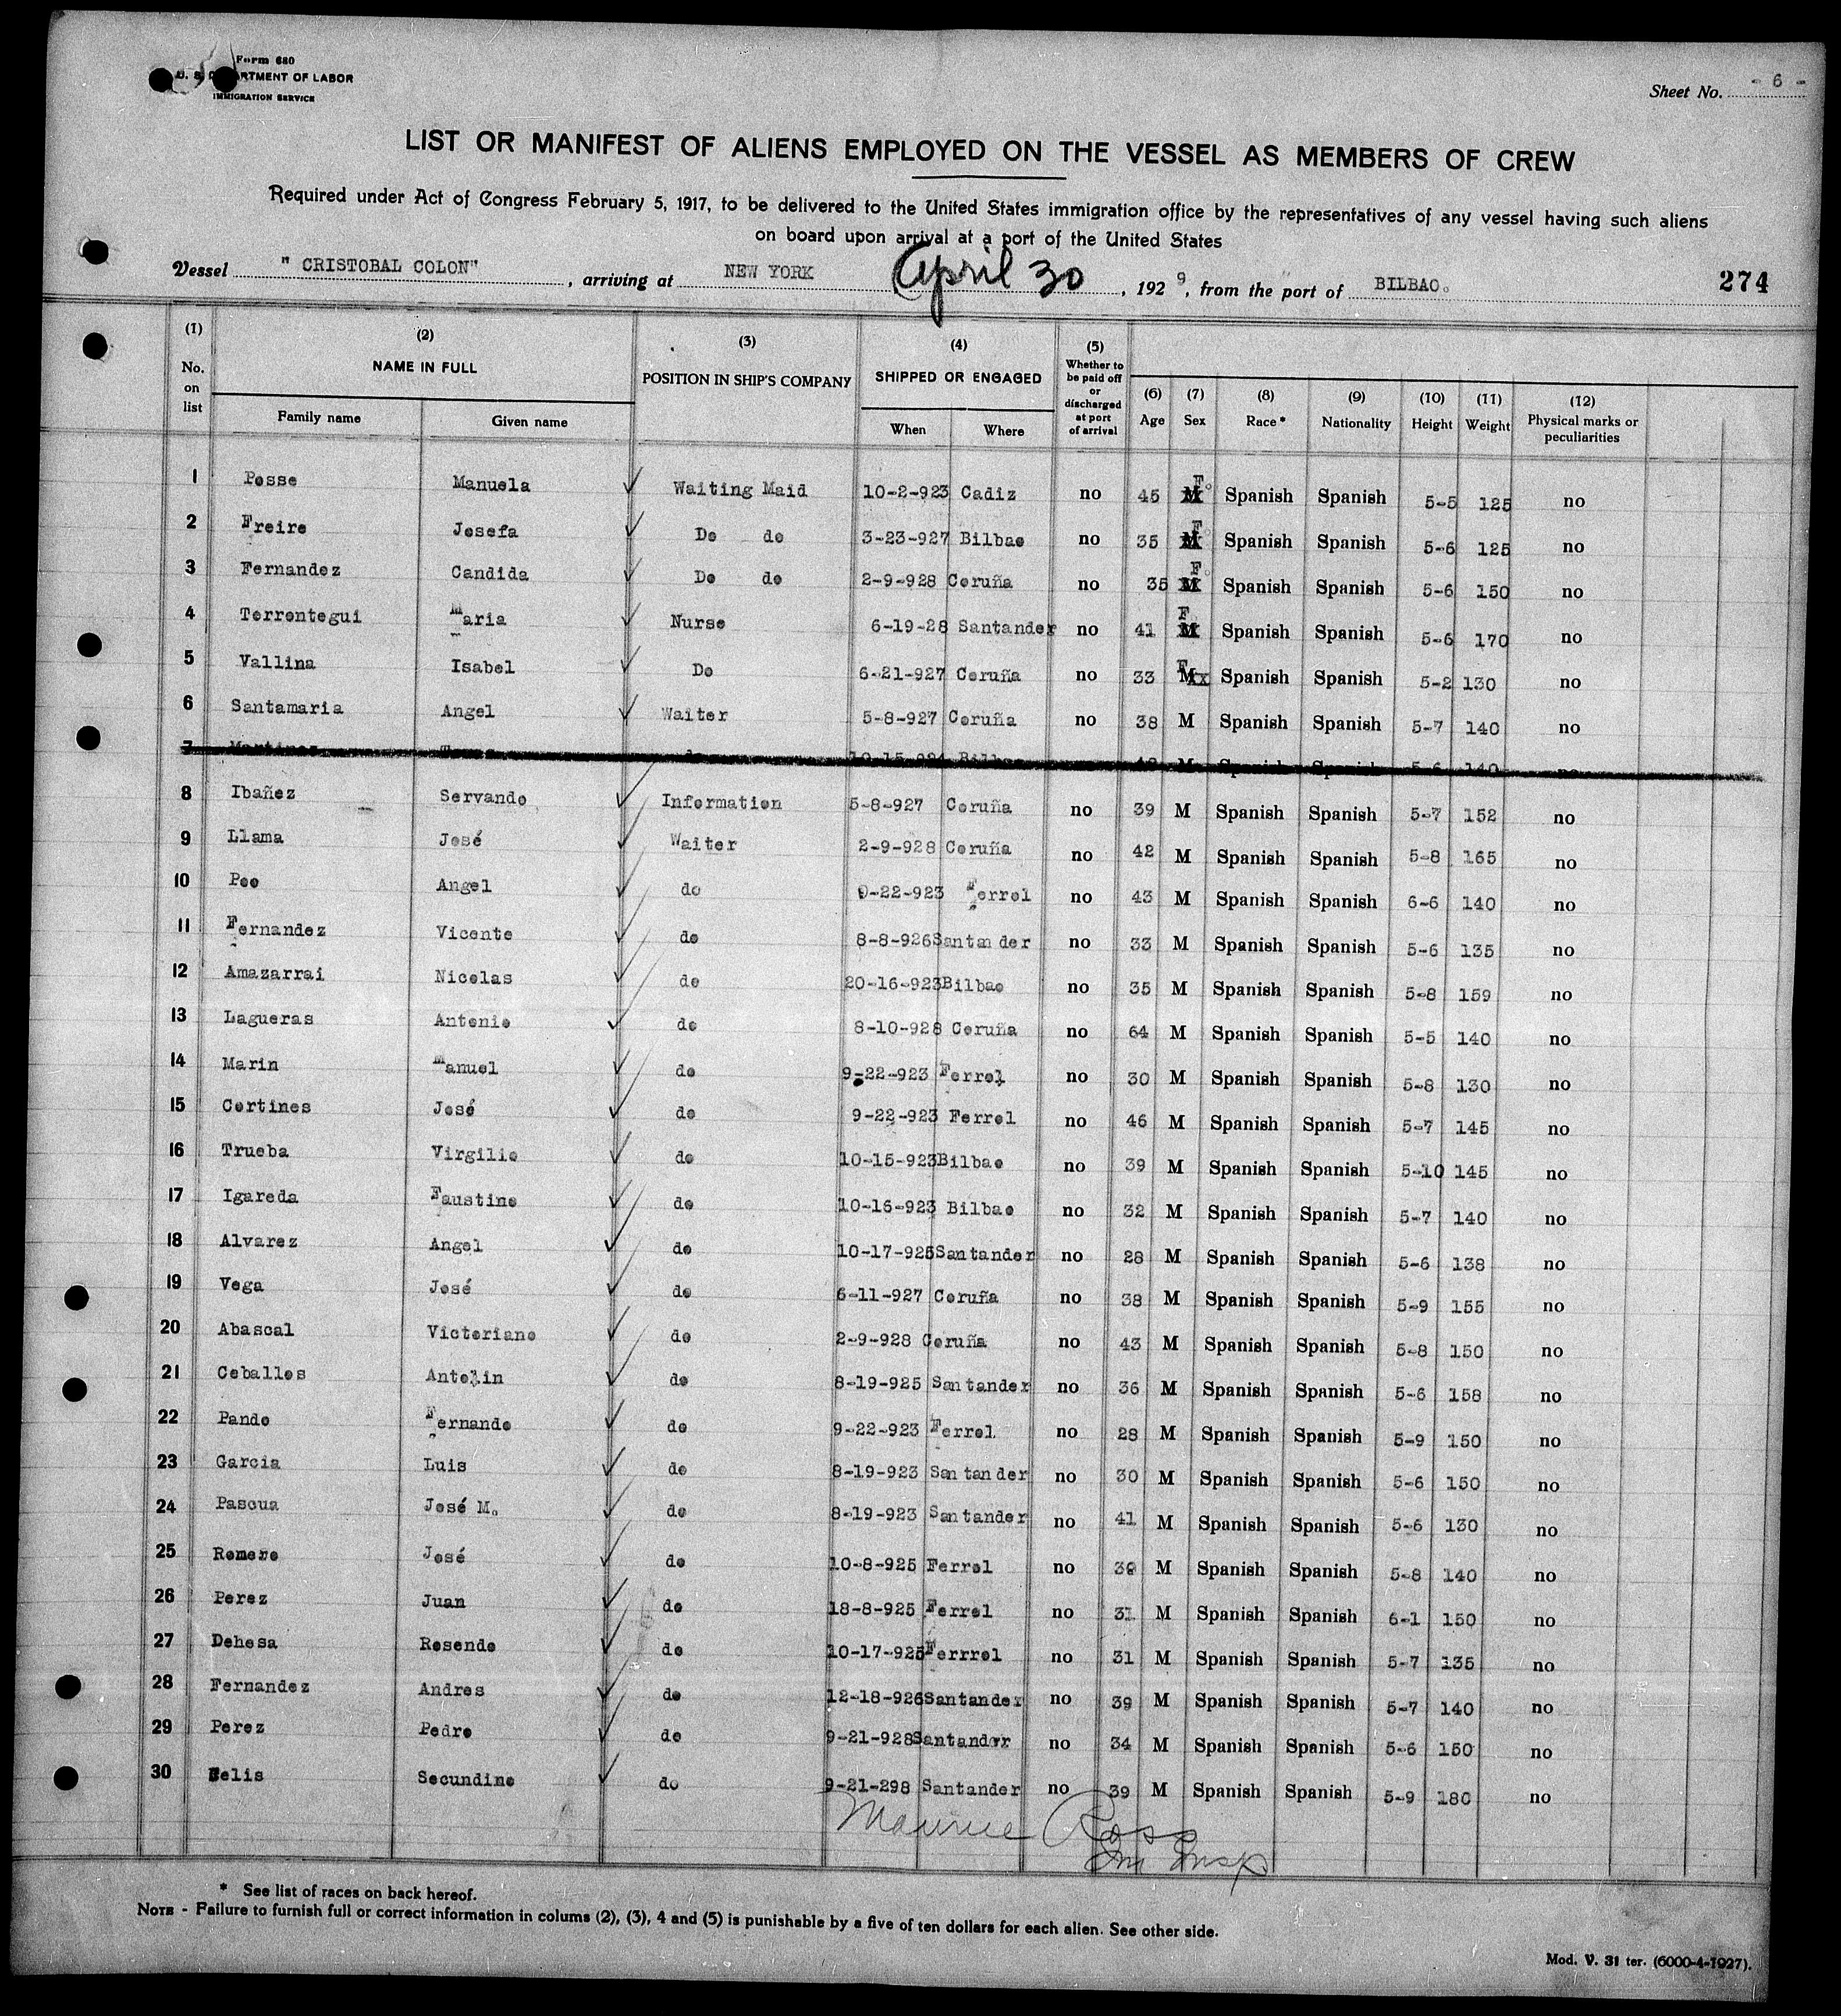 Form 680
U. S. DEPARTMENT OF LABOR
IMMIGRATION SERVICE
Sheet No. - 6 -
LIST OR MANIFEST OF ALIENS EMPLOYED ON THE VESSEL AS MEMBERS OF CREW
Required under Act of Congress February 5, 1917, to be delivered to the United States immigration office by the representatives of any vessel having such aliens
on board upon arrival at a port of the United States
Vessel " CRISTOBAL COLON" , arriving at NEW YORK April 30 , 192 9, from the port of BILBAO. 274
(1) No. on list (2) NAME IN FULL Family name Given name (3) POSITION IN SHIP'S COMPANY (4) SHIPPED OR ENGAGED When Where (5) Whether to be paid off or discharged at port of arrival (6) Age (7) Sex (8) Race * (9) Nationality (10) Height (11) Weight (12) Physical marks or peculiarities
1 Posse Manuela Waiting Maid 10-2-923 Cadiz no 45 F Spanish Spanish 5-5 125 no
2 Freire Josefa Do do 3-23-927 Bilbao no 35 F Spanish Spanish 5-6 125 no
3 Fernandez Candida Do do 2-9-928 Coruña no 35 F Spanish Spanish 5-6 150 no
4 Terrontegui Maria Nurse 6-19-28 Santander no 41 F Spanish Spanish 5-6 170 no
5 Vallina Isabel Do 6-21-927 Coruña no 33 F Spanish Spanish 5-2 130 no
6 Santamaria Angel Waiter 5-8-927 Coruña no 38 M Spanish Spanish 5-7 140 no
7 Martinez do Bilbao M Spanish Spanish 5-6 140 no
8 Ibañez Servando Information 5-8-927 Coruña no 39 M Spanish Spanish 5-7 152 no
9 Llama José Waiter 2-9-928 Coruña no 42 M Spanish Spanish 5-8 165 no
10 Poo Angel do 9-22-923 Ferrol no 43 M Spanish Spanish 6-6 140 no
11 Fernandez Vicente do 8-8-926 Santander no 33 M Spanish Spanish 5-6 135 no
12 Amazarrai Nicolas do 20-16-923 Bilbao no 35 M Spanish Spanish 5-8 159 no
13 Lagueras Antonio do 8-10-928 Coruña no 64 M Spanish Spanish 5-5 140 no
14 Marin Manuel do 9-22-923 Ferrol no 30 M Spanish Spanish 5-8 130 no
15 Cortines José do 9-22-923 Ferrol no 46 M Spanish Spanish 5-7 145 no
16 Trueba Virgilio do 10-15-923 Bilbao no 39 M Spanish Spanish 5-10 145 no
17 Igareda Faustino do 10-16-923 Bilbao no 32 M Spanish Spanish 5-7 140 no
18 Alvarez Angel do 10-17-925 Santander no 28 M Spanish Spanish 5-6 138 no
19 Vega José do 6-11-927 Coruña no 38 M Spanish Spanish 5-9 155 no
20 Abascal Victoriano do 2-9-928 Coruña no 43 M Spanish Spanish 5-8 150 no
21 Ceballos Antolin do 8-19-925 Santander no 36 M Spanish Spanish 5-6 158 no
22 Pando Fernando do 9-22-923 Ferrol no 28 M Spanish Spanish 5-9 150 no
23 Garcia Luis do 8-19-923 Santander no 30 M Spanish Spanish 5-6 150 no
24 Pascua José M. do 8-19-923 Santander no 41 M Spanish Spanish 5-6 130 no
25 Romero José do 10-8-925 Ferrol no M Spanish Spanish 5-8 140 no
26 Perez Juan do 18-8-925 Ferrol no 31 M Spanish Spanish 6-1 150 no
27 Dehesa Rosendo do 10-17-925 Ferrrol no 31 M Spanish Spanish 5-7 135 no
28 Fernandez Andres do 12-18-926 Santander no 39 M Spanish Spanish 5-7 140 no
29 Perez Pedro do 9-21-928 Santander no 34 M Spanish Spanish 5-6 150 no
30 Secundino do 9-21-298 Santander no 39 M Spanish Spanish 5-9 180 no
Maurice Ross
Im Insp
* See list of races on back hereof.
NOTE - Failure to furnish full or correct information in colums (2), (3), 4 and (5) is punishable by a five of ten dollars for each alien. See other side.
Mod. V. 31 ter. (6000-4-1927).